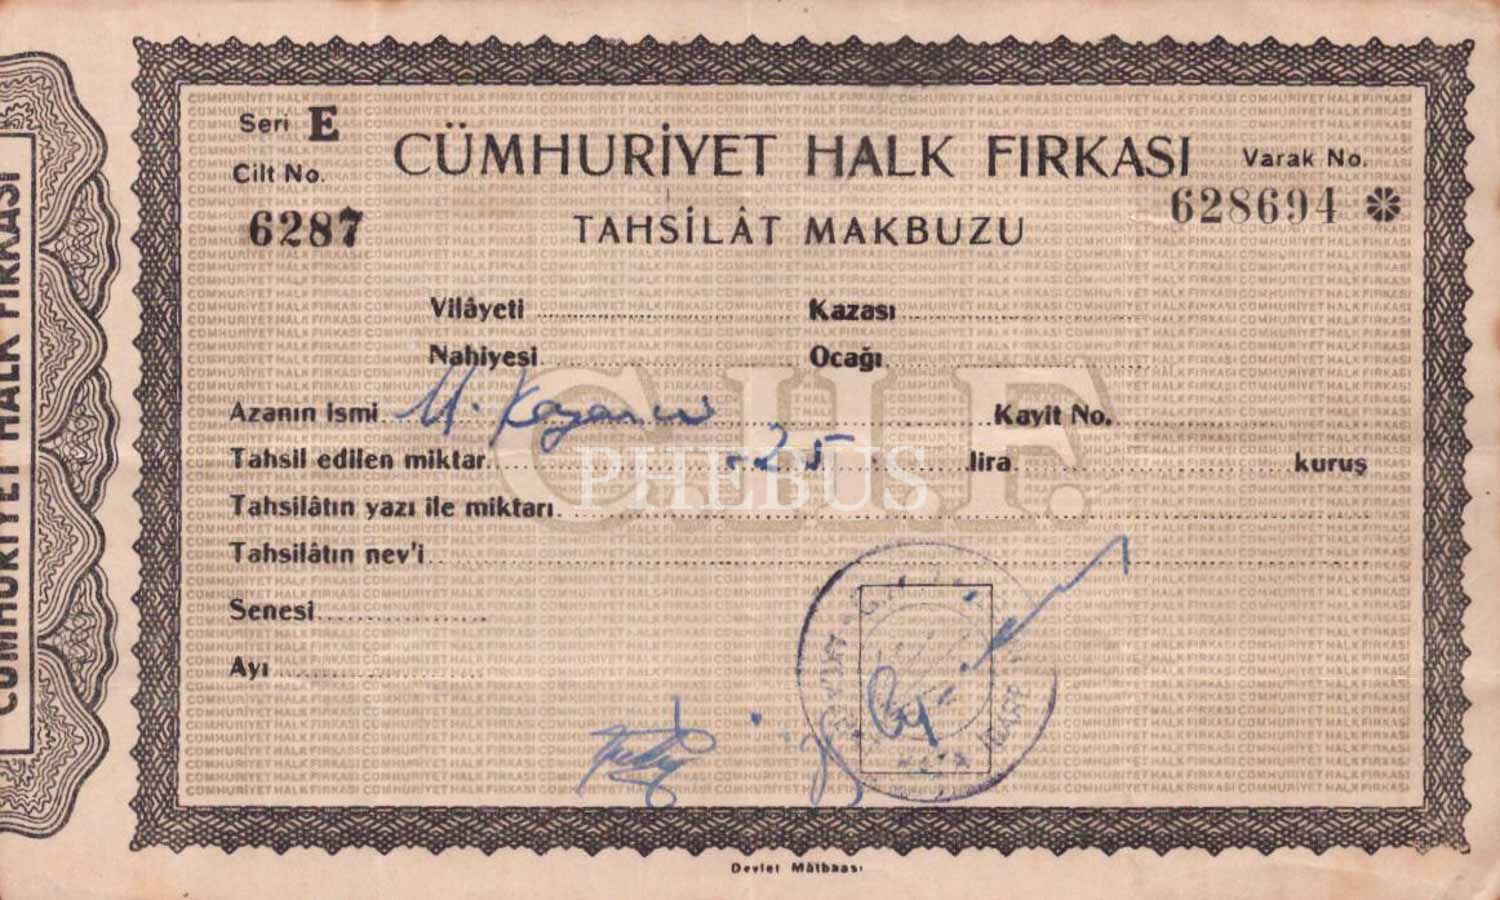 CÜMHURİYET HALK FIRKASI
Seri E
Cilt No.
6287
CÜMHURİYET HALK FIRKASI
TAHSİLÂT MAKBUZU
Varak No.
628694
Vilâyeti Kazası
Nahiyesi Ocağı
C.H.F.
Azanın ismi Kayit No.
Tahsil edilen miktar -25 lira kuruş
PHEBUS
Tahsilâtın yazı ile miktarı
Tahsilâtın nev'i
Senesi
Ayı
Devlet Mâtbaası